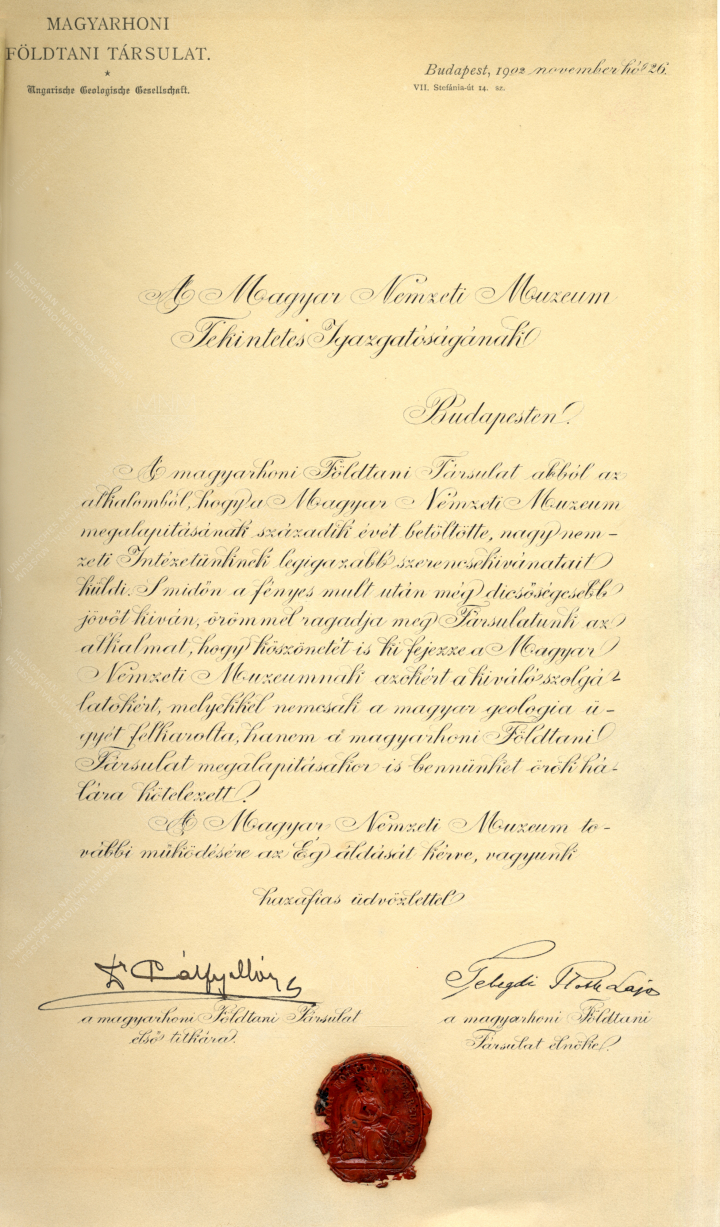 MAGYARHONI
FÖLDTANI TÁRSULAT.
*
Ungarische Geologische Gesellschaft.
Budapest, 1902 november hó 26.
VII. Stefánia-út 14. sz.
A Magyar Nemzeti Muzeum
Tekintetes Igazgatóságának
Budapesten.
A magyarhoni Földtani Társulat abból az
alkalomból, hogy a Magyar Nemzeti Muzeum
megalapitásának századik évét betöltötte, nagy nem-
zeti Intézetünknek legigazabb szerencsekivánatait
küldi. S midőn a fényes mult után még dicsőségesebb
jövőt kiván, örömmel ragadja meg Társulatunk az
alkalmat, hogy köszönetét is ki fejezze a Magyar
Nemzeti Muzeumnak azokért a kiváló szolgá-
latokért, melyekkel nemcsak a magyar geologia ü-
gyét felkarolta, hanem a magyarhoni Földtani
Társulat megalapitásakor is bennünket örök há-
lára kötelezett.
A Magyar Nemzeti Muzeum to-
vábbi működésére az Ég áldását kérve, vagyunk
hazafias üdvözlettel
Dr Pálfy Mór
a magyarhoni Földtani Társulat
első titkára.
Telegdi Roth Lajos
a magyarhoni Földtani
Társulat elnöke.
FÖLDTANI TÁRSULAT